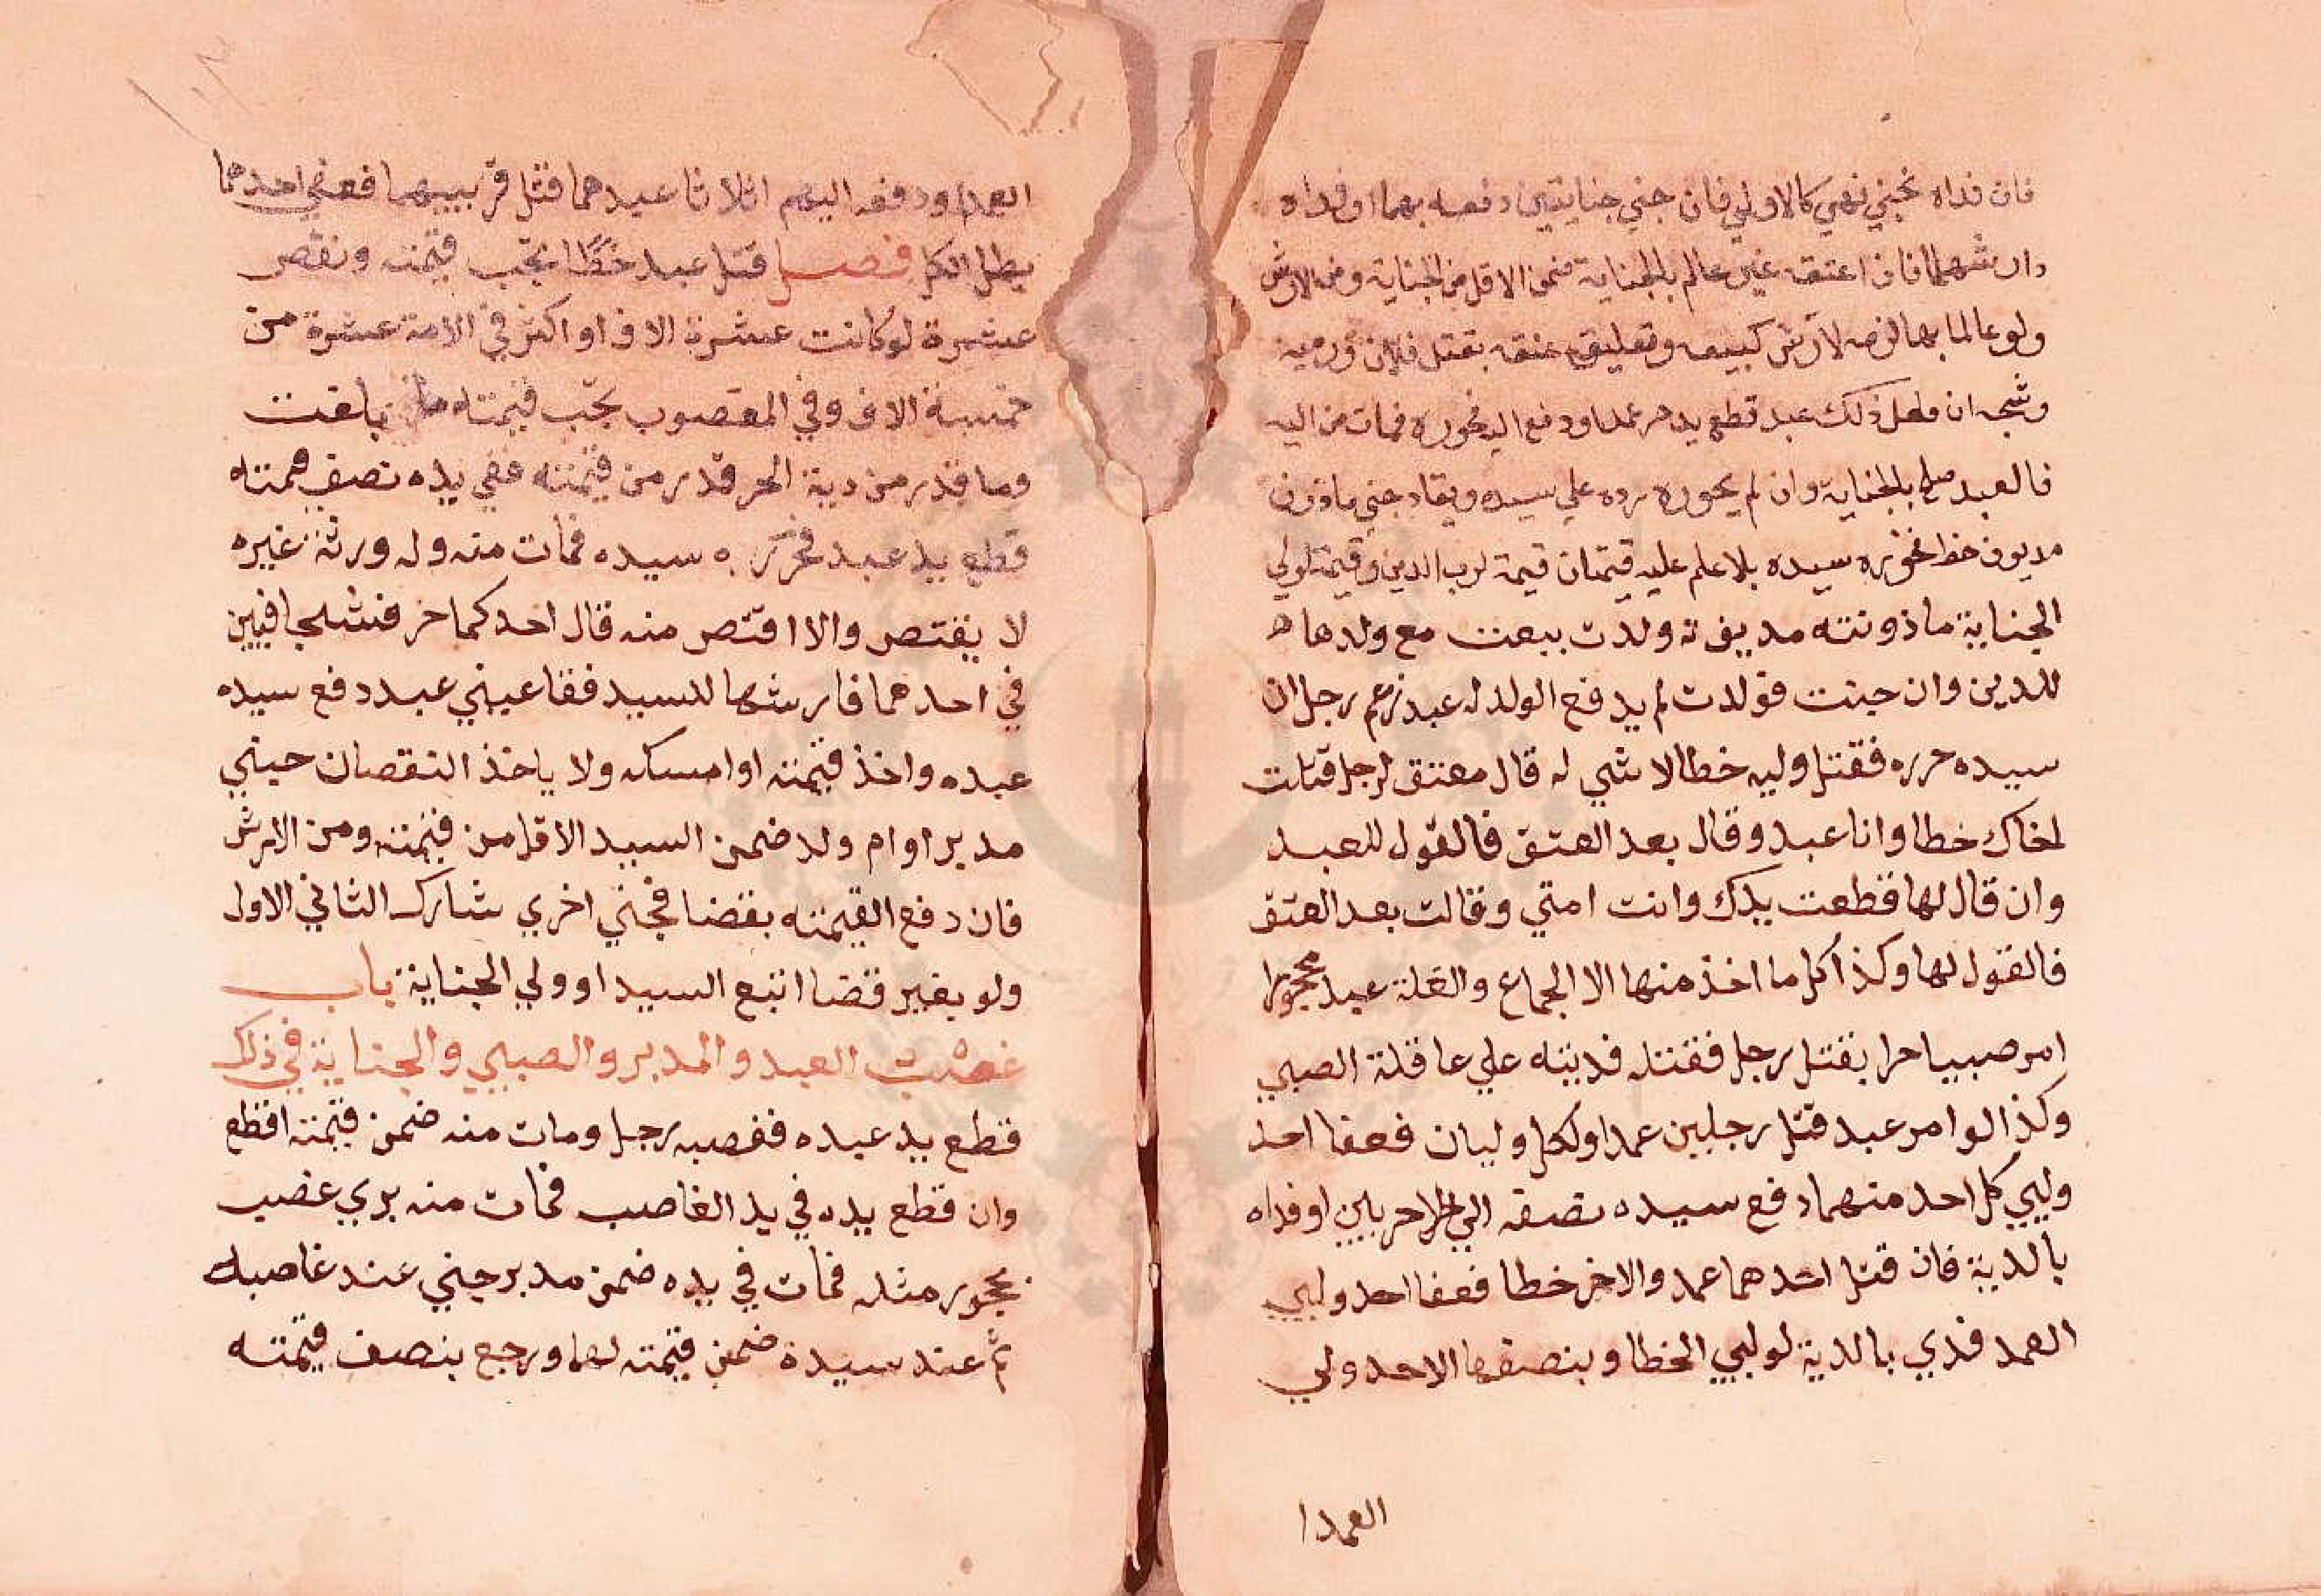 فان فداه فجني فهي كالاولي فان جني جنايتين دفعه بهما او فداه
بارشهما فان اعتقه غير عالم بالجناية ضمن الاقل من الجناية ومن الارش
ولو عالما بها لزمه الارش كبيعه وتعليق عتقه بقتل فلان ورميه
وشجه ان فعل ذلك عبد قطع يد حر عمدا ودفع اليه فحرره فمات من اليد
فالعبد صلح بالجناية وان لم يحرره رده علي سيده ويقاد جني ماذون
مديون خطا فحرره سيده بلا علم عليه قيمتان قيمة لرب الدين وقيمة لولي
الجناية ماذونته مديونة ولدت بيعت مع ولدها
للدين وان جنت فولدت لم يدفع الولد له عبد زعم رجل ان
سيده حرره فقتل وليه خطا لا شي له قال معتق لرجل قتلت
اخاك خطا وانا عبد وقال بعد العتق فالقول للعبد
وان قال لها قطعت يدك وانت امتي وقالت بعد العتق
فالقول لها وكذا كل ما اخذ منها الا الجماع والغلة عبد محجور
امر صبيا حرا بقتل رجل فقتله فديته علي عاقلة الصبي
وكذا لو امر عبد قتل رجلين عمدا ولكل وليان فعفا احد
وليي كل احد منهما دفع سيده نصفه الي الاخرين او فداه
بالدية فان قتل احدهما عمد والاخر خطا فعفا احد وليي
العمد فدي بالدية لوليي الخطا وبنصفها لاحد ولي
العمد ا
العمد او دفعه اليهم اثلاثا عبدهما قتل قريبهما فعفي احدهما
بطل الكل فصل قتل عبد خطا تجب قيمته ونقص
عشرة لو كانت عشرة الاف او اكثر في الامة عشرة من
خمسة الاف وفي المغصوب تجب قيمته ما بلغت
وما قدر من دية الحر قدر من قيمته ففي يده نصف قيمته
قطع يد عبد فحرره سيده فمات منه وله ورثة غيره
لا يقتص والا اقتص منه قال احدكما حر فشجا فبين
في احدهما فارشها للسيد فقا عيني عبد دفع سيده
عبده واخذ قيمته او امسكه ولا ياخذ النقصان جني
مدبر او ام ولد ضمن السيد الاقل من قيمته ومن الارش
فان دفع القيمته بقضا فجني اخري شارك الثاني الاول
ولو بغير قضا اتبع السيد او ولي الجناية باب
غصب العبد والمدبر والصبي والجناية في ذلك
قطع يد عبده فغصبه رجل ومات منه ضمن قيمته اقطع
وان قطع يده في يد الغاصب فمات منه بري غصب
محجور مثله فمات في يده ضمن مدبر جني عند غاصبه
ثم عند سيده ضمن قيمته لهما ورجع بنصف قيمته